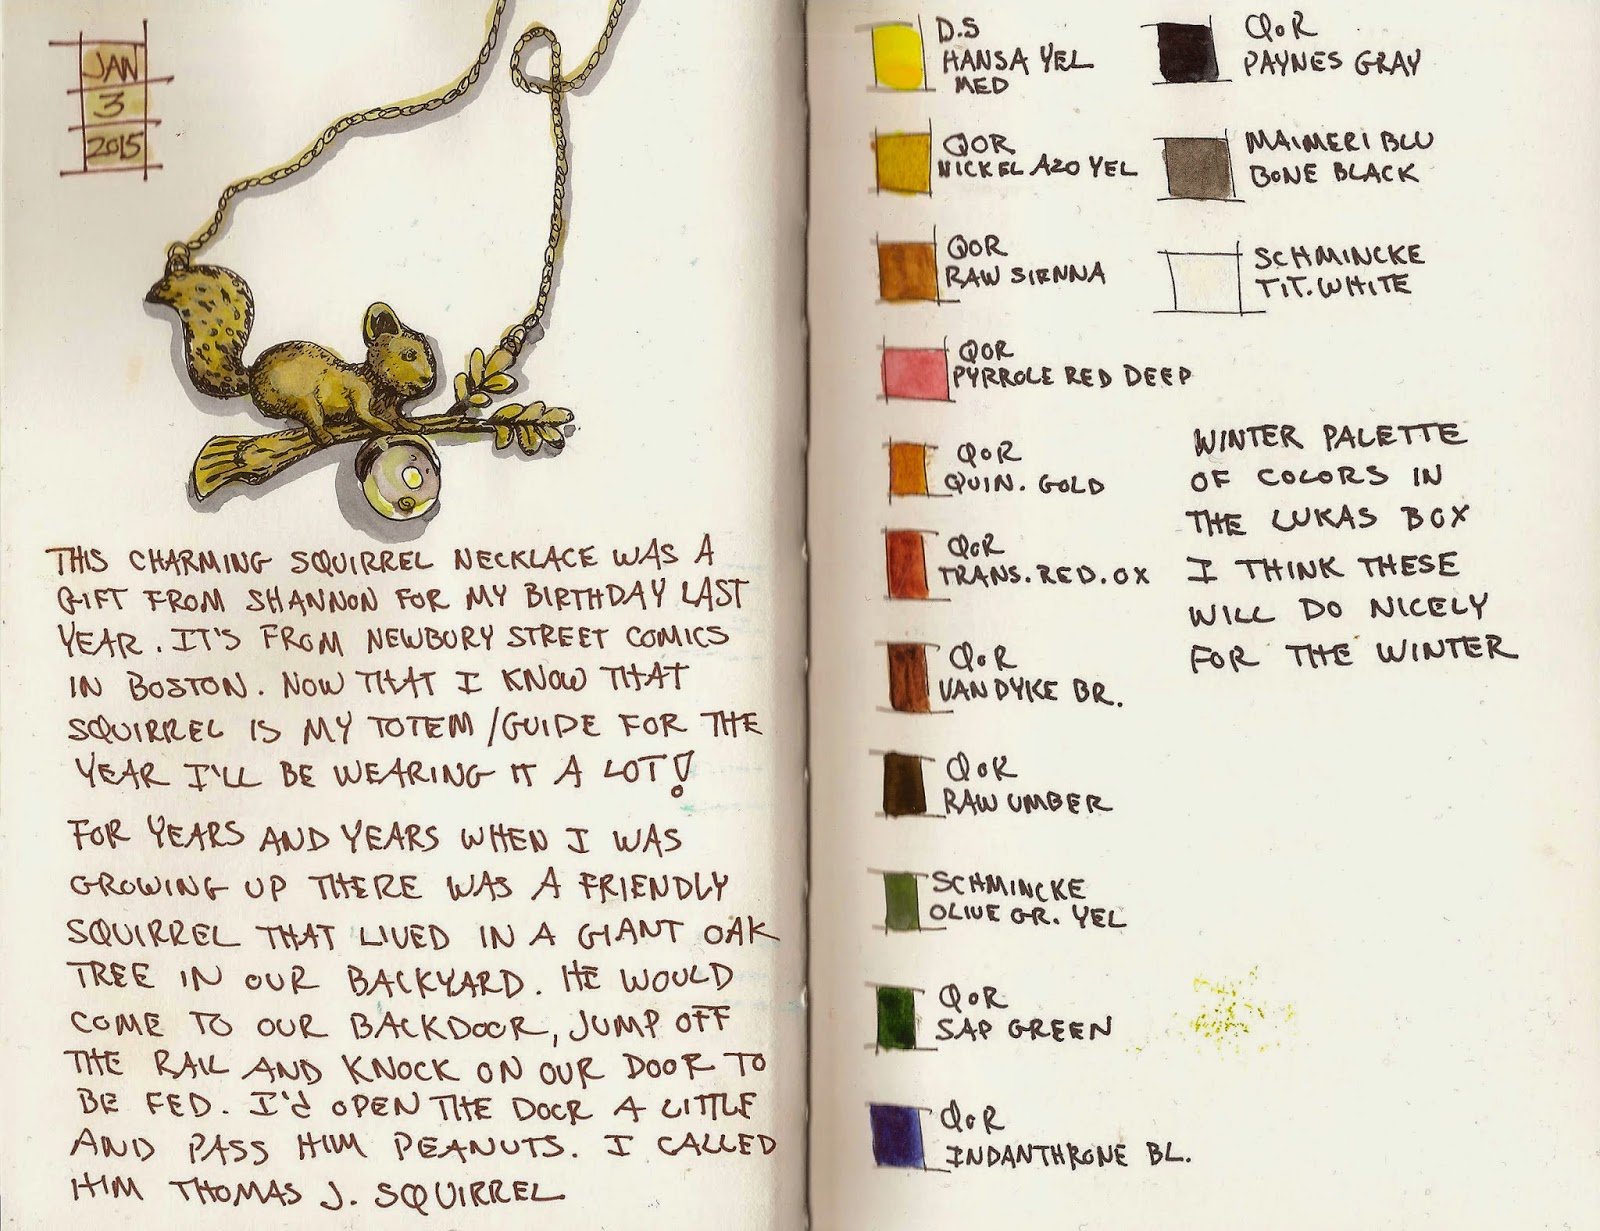 JAN
3
2015
THIS CHARMING SQUIRREL NECKLACE WAS A
GIFT FROM SHANNON FOR MY BIRTHDAY LAST
YEAR. IT'S FROM NEWBURY STREET COMICS
IN BOSTON. NOW THAT I KNOW THAT
SQUIRREL IS MY TOTEM/GUIDE FOR THE
YEAR I'LL BE WEARING IT A LOT!
FOR YEARS AND YEARS WHEN I WAS
GROWING UP THERE WAS A FRIENDLY
SQUIRREL THAT LIVED IN A GIANT OAK
TREE IN OUR BACKYARD. HE WOULD
COME TO OUR BACKDOOR, JUMP OFF
THE RAIL AND KNOCK ON OUR DOOR TO
BE FED. I'd OPEN THE DOOR A LITTLE
AND PASS HIM PEANUTS. I CALLED
HIM THOMAS J. SQUIRREL
D.S
HANSA YEL
MED
QOR
NICKEL AZO YEL
QOR
RAW SIENNA
QOR
PYRROLE RED DEEP
QOR
QUIN. GOLD
QOR
TRANS. RED. OX
QOR
VAN DYKE BR.
QOR
RAW UMBER
SCHMINCKE
OLIVE GR. YEL
QOR
SAP GREEN
QOR
INDANTHRONE BL.
QOR
PAYNES GRAY
MAIMERI BLU
BONE BLACK
SCHMINCKE
TIT. WHITE
WINTER PALETTE
OF COLORS IN
THE LUKAS BOX
I THINK THESE
WILL DO NICELY
FOR THE WINTER